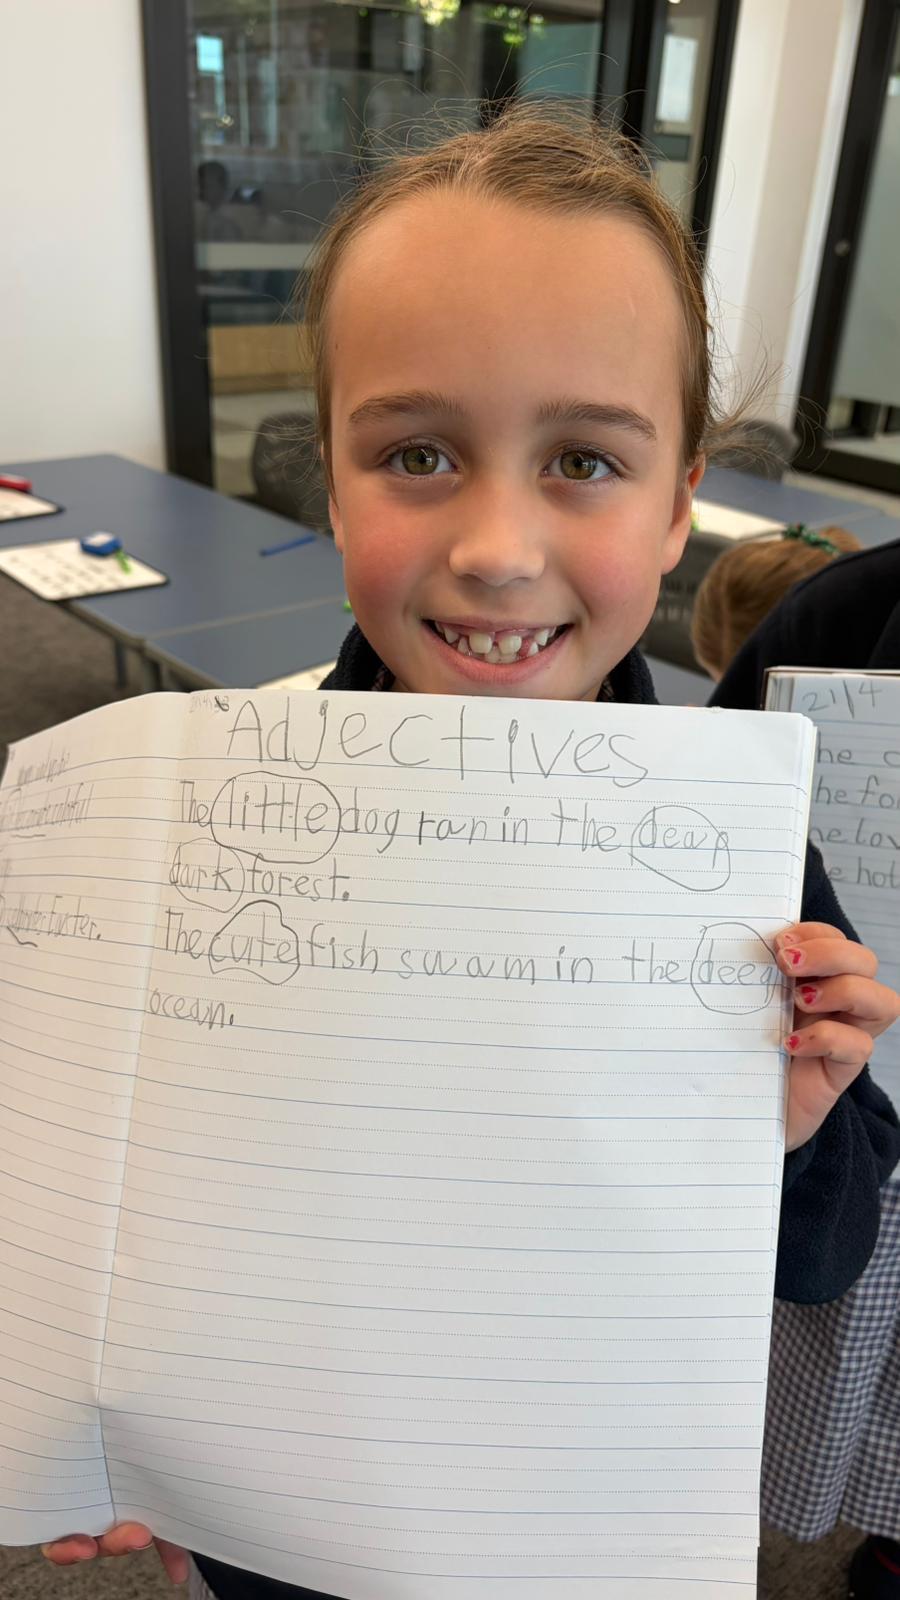 Adjectives
The little dog ran in the deap
dark forest.
The cute fish swam in the deep
ocean.
Easter.
21/4
he c
he fo
he lov
e hot